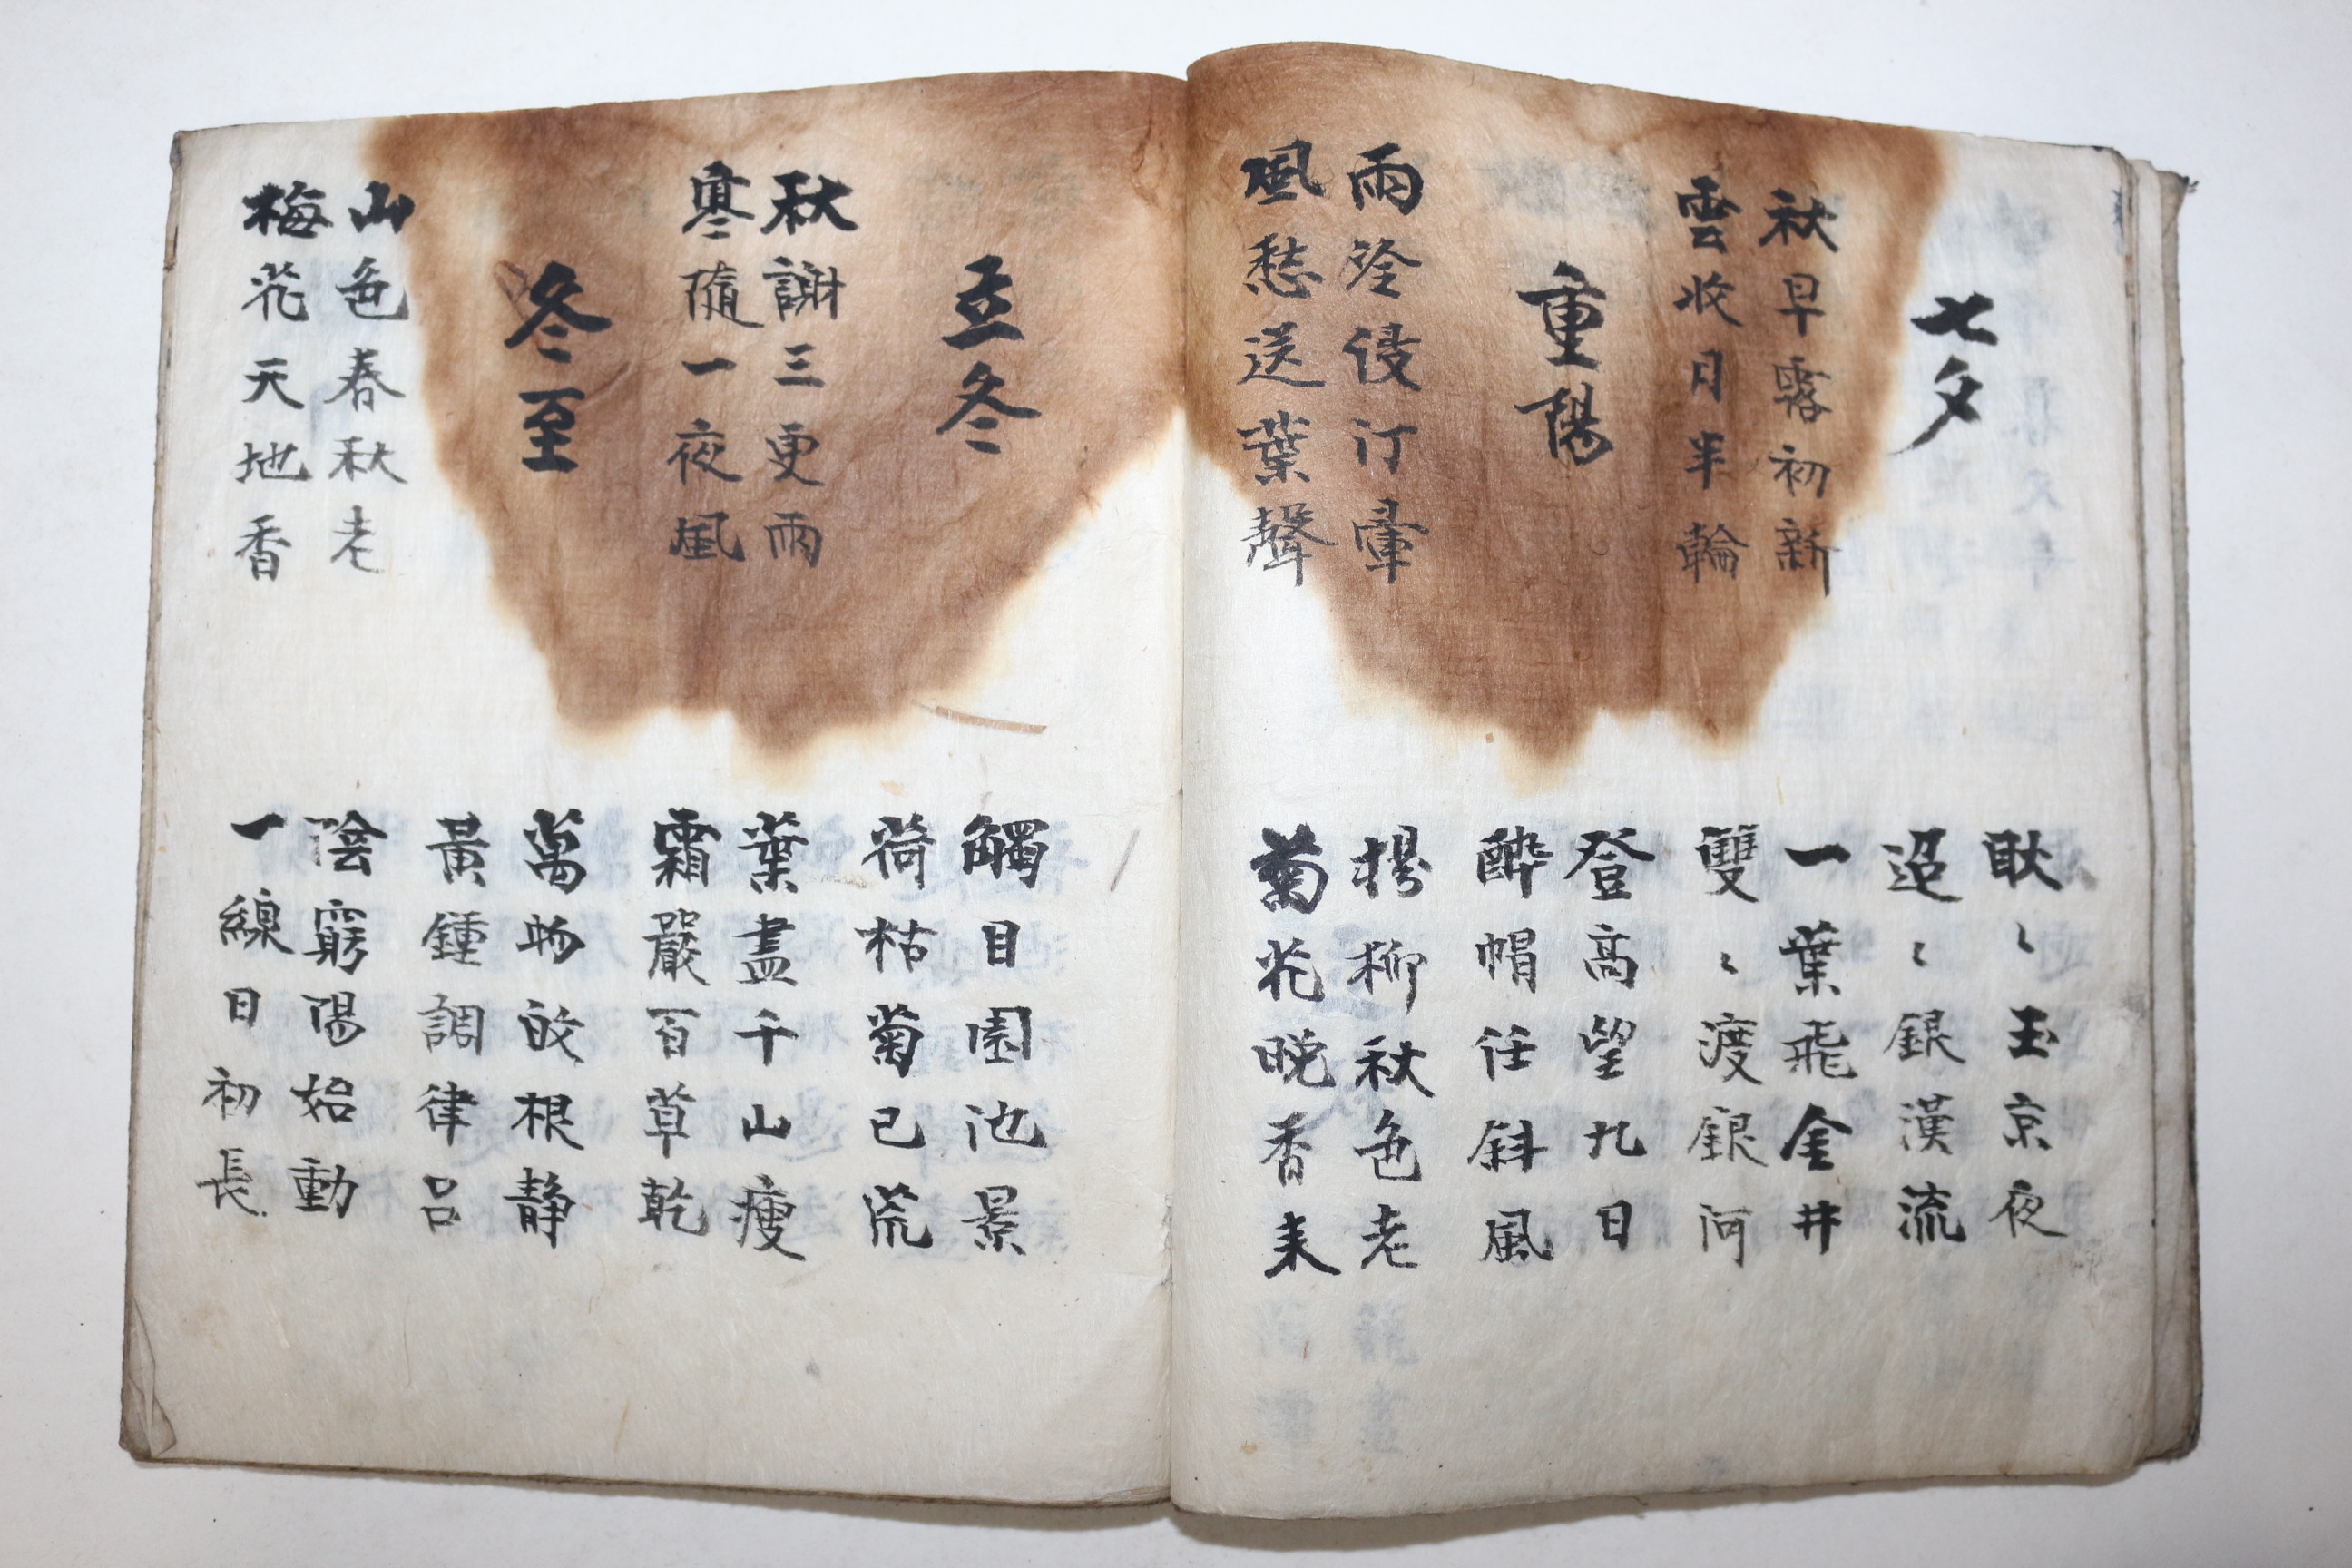 七夕
耿〻玉京夜
迢〻銀漢流
秋早露初新
雲收月半輪
一葉飛金井
雙〻渡銀河
重陽
登高望九日
醉帽任斜風
雨侵汀
風愁送葉聲
楊柳秋色老
菊花晩香来
立冬
觸目園池景
荷枯菊已荒
秋謝三更雨
寒隨一夜風
葉盡千山瘦
霜嚴百草乾
冬至
萬物敀根静
黃鍾調律呂
山色春秋老
梅花天地香
陰窮陽始動
一線日初長